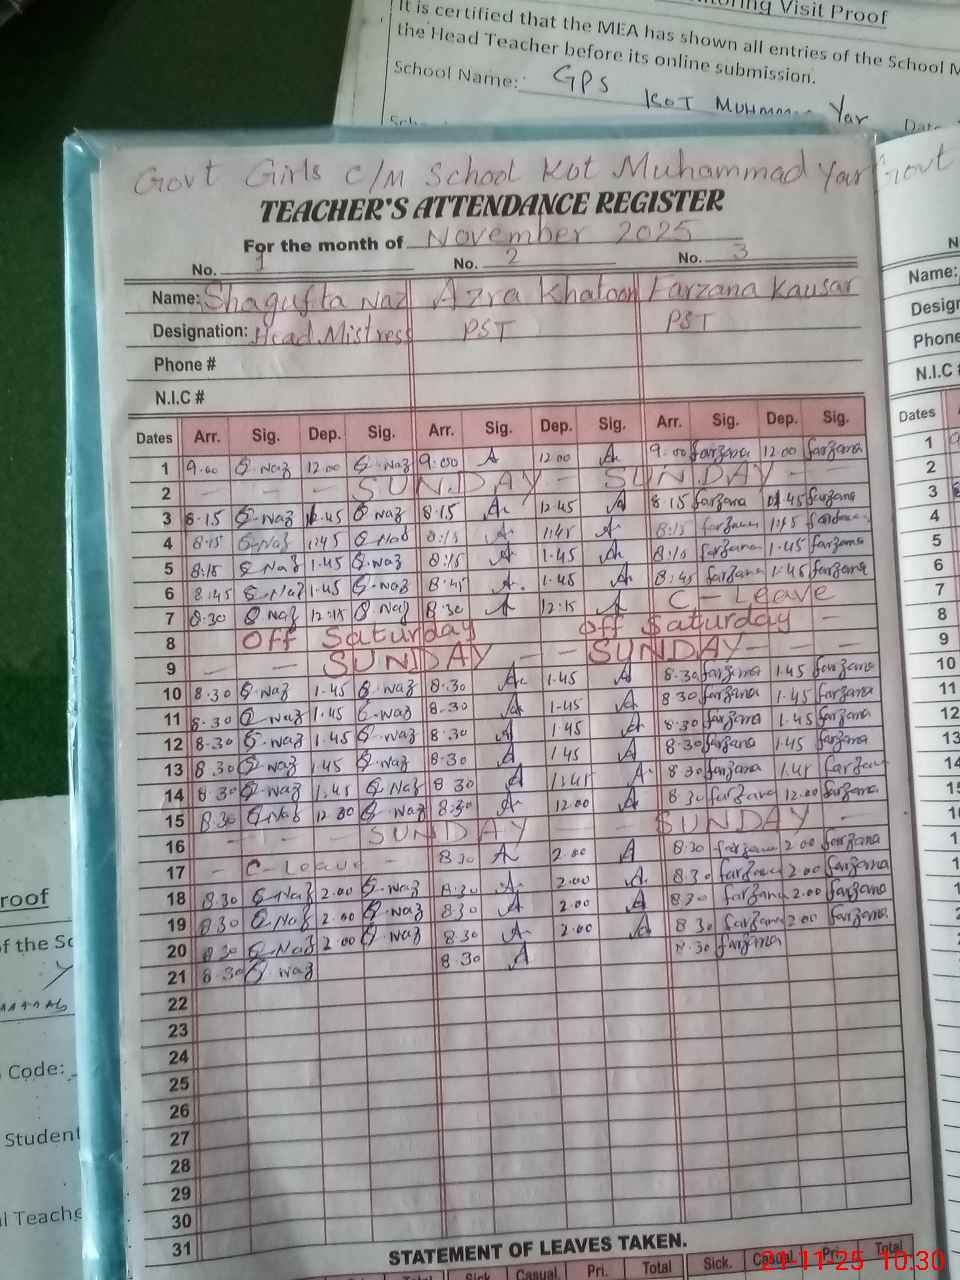 nitoring Visit Proof
It is certified that the MEA has shown all entries of the School M
the Head Teacher before its online submission.
School Name: GPS
KOT MUHMMAD Yar
Govt Girls C/M School Kot Muhammad Yar
Govt
TEACHER'S ATTENDANCE REGISTER
For the month of November 2025
No. 1 No. 2 No. 3
Name: Shagufta Naz Azra Khatoon Farzana Kausar
Designation: Head Mistress PST PST
Phone #
N.I.C #
Dates Arr. Sig. Dep. Sig. Arr. Sig. Dep. Sig. Arr. Sig. Dep. Sig.
1 9.00 S.Naz 12.00 S.Naz 9.00 A 12.00 A 9.00 farzana 12.00 farzana
2 — — — SUNDAY — SUNDAY — —
3 8.15 S.Naz 12.45 S.Naz 8.15 A 12.45 A 8.15 farzana 12.45 farzana
4 8.15 S.Naz 1.45 S.Naz 8.15 A 1.45 A 8.15 farzana 1.45 farzana
5 8.15 S.Naz 1.45 S.Naz 8.15 A 1.45 A 8.15 farzana 1.45 farzana
6 8.45 S.Naz 1.45 S.Naz 8.45 A 1.45 A 8.45 farzana 1.45 farzana
7 8.30 S.Naz 12.15 S.Naz 8.30 A 12.15 A C-Leave
8 Off Saturday off Saturday —
9 — — SUNDAY — — SUNDAY — — —
10 8.30 S.Naz 1.45 S.Naz 8.30 A 1.45 A 8.30 farzana 1.45 farzana
11 8.30 S.Naz 1.45 S.Naz 8.30 A 1.45 A 8.30 farzana 1.45 farzana
12 8.30 S.Naz 1.45 S.Naz 8.30 A 1.45 A 8.30 farzana 1.45 farzana
13 8.30 S.Naz 1.45 S.Naz 8.30 A 1.45 A 8.30 farzana 1.45 farzana
14 8.30 S.Naz 1.45 S.Naz 8.30 A 1.45 A 8.30 farzana 1.45 farzana
15 8.30 S.Naz 12.30 S.Naz 8.30 A 12.00 A 8.30 farzana 12.00 farzana
16 — — — SUNDAY — — SUNDAY —
17 — C-Leave — 8.30 A 2.00 A 8.30 farzana 2.00 farzana
18 8.30 S.Naz 2.00 S.Naz 8.30 A 2.00 A 8.30 farzana 2.00 farzana
19 8.30 S.Naz 2.00 S.Naz 8.30 A 2.00 A 8.30 farzana 2.00 farzana
20 8.30 S.Naz 2.00 S.Naz 8.30 A 2.00 A 8.30 farzana 2.00 farzana
21 8.30 S.Naz 8.30 A 8.30 farzana
22
23
24
25
26
27
28
29
30
31
STATEMENT OF LEAVES TAKEN.
Total Sick. Casual Pri. Total Sick. Casual Pri. Total
N
Name:
Design
Phone
N.I.C #
Dates
1
2
3
4
5
6
7
8
9
10
11
12
13
14
roof
of the Sc
Code:
Student
l Teache
21-11-25 10:30